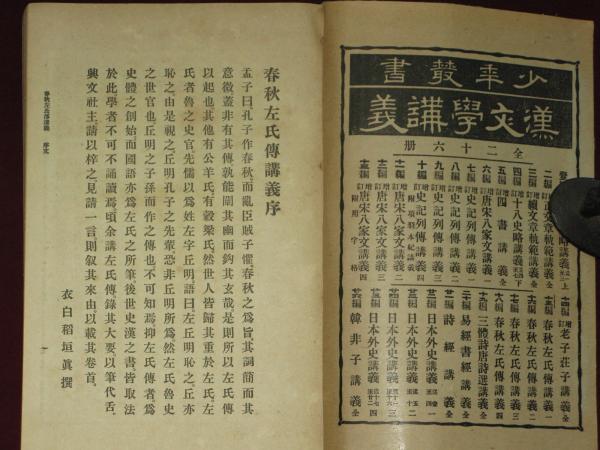 少年叢書
漢文學講義
全二十六册
二編 增訂 文章軌範講義 全
三編 增訂 續文章軌範講義 全
四編 增訂 十八史略講義 下
五編 增訂 四書講義 全
六編 增訂 唐宋八家文講義 一
七編 增訂 史記列傳講義 一
八編 增訂 史記列傳講義 二
九編 增訂 史記列傳講義 三
十編 增訂 史記列傳講義 四
附項羽本紀講義
十一編 增訂 唐宋八家文講義 二
十二編 增訂 唐宋八家文講義 三
十三編 增訂 唐宋八家文講義 四
附用字格
十四編 增訂 老子莊子講義 全
十五編 春秋左氏傳講義 一
十六編 春秋左氏傳講義 二
十七編 春秋左氏傳講義 三
十八編 春秋左氏傳講義 四
十九編 三體詩唐詩選講義 全
二十編 易經書經講義 全
詩經講義 全
日本外史講義 一
日本外史講義 二
日本外史講義 三
日本外史講義 四
韓非子講義 全
春秋左氏傳講義序
孟子曰、孔子作春秋、而亂臣賊子懼、春秋之爲旨、其詞簡而其
意微、蓋非有其傳、孰能闡其幽而鈎其玄哉、是則所以左氏傳
以起也、其他有公羊氏、有穀梁氏、然世人皆歸其重於左氏、左
氏者魯之史官、先儒以爲姓左字丘明、語曰左丘明恥之、丘亦
恥之、由是視之、丘明孔子之先輩、恐非丘明所爲、然左氏魯史
之世官也、丘明之子孫而作之傳也不可知焉、抑左氏傳者、爲
史體之創始、而國語亦爲左氏之所筆、後世史漢之書、皆取法
於此、學者不可不誦讀焉、頃余講左氏傳、錄其大要、以筆代舌、
興文社主、請以梓之見、請一言、則叙其來由以載其卷首、
衣白稻垣眞撰
春秋左氏傳講義 序文
一